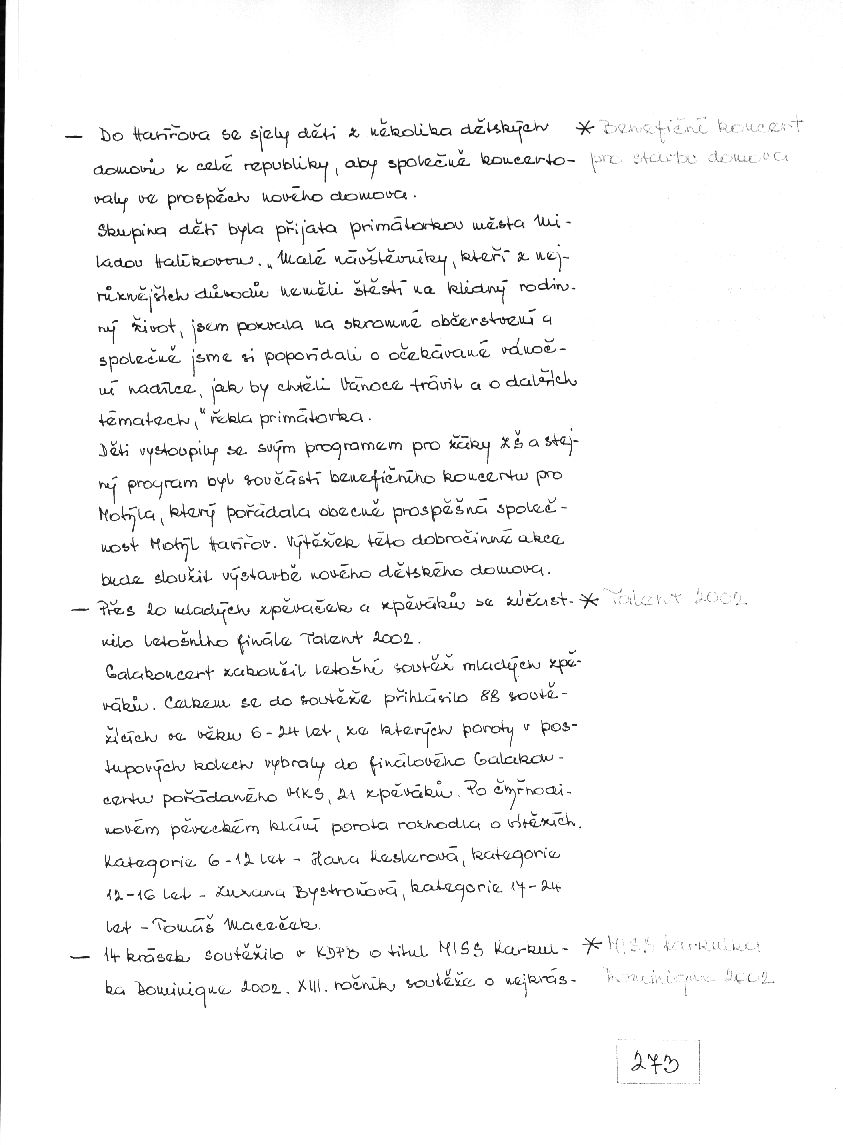 — Do Havířova se sjely děti z několika dětských * Benefiční koncert
domovů z celé republiky, aby společně koncerto- pro stavbu domova
valy ve prospěch nového domova.
Skupina dětí byla přijata primátorkou města Mi-
ladou Halíkovou. „Malé návštěvníky, kteří z nej-
různějších důvodů neměli štěstí na klidný rodin-
ný život, jsem pozvala na skromné občerstvení a
společně jsme si popovídali o očekávané vánoč-
ní nadílce, jak by chtěli Vánoce trávit a o dalších
tématech," řekla primátorka.
Děti vystoupily se svým programem pro žáky ZŠ a stej-
ný program byl součástí benefičního koncertu pro
Motýla, který pořádala obecně prospěšná společ-
nost Motýl Havířov. Výtěžek této dobročinné akce
bude sloužit výstavbě nového dětského domova.
— Přes 20 mladých zpěvaček a zpěváků se zúčast- * Talent 2002.
nilo letošního finále Talent 2002.
Galakoncert zakončil letošní soutěž mladých zpě-
váků. Celkem se do soutěže přihlásilo 88 soutě-
žících ve věku 6-24 let, ze kterých poroty v pos-
tupových kolech vybraly do finálového Galakon-
certu pořádaného MKS, 21 zpěváků. Po čtyřhodi-
novém pěveckém klání porota rozhodla o vítězích.
Kategorie 6-12 let - Hana Keslerová, kategorie
12-16 let - Zuzana Bystroňová, kategorie 17-24
let - Tomáš Maceček.
— 14 krásek soutěžilo v KDPB o titul MISS Karkul- * MISS Karkulka
ka Dominique 2002. XIII. ročník soutěže o nejkrás- Dominique 2002
273